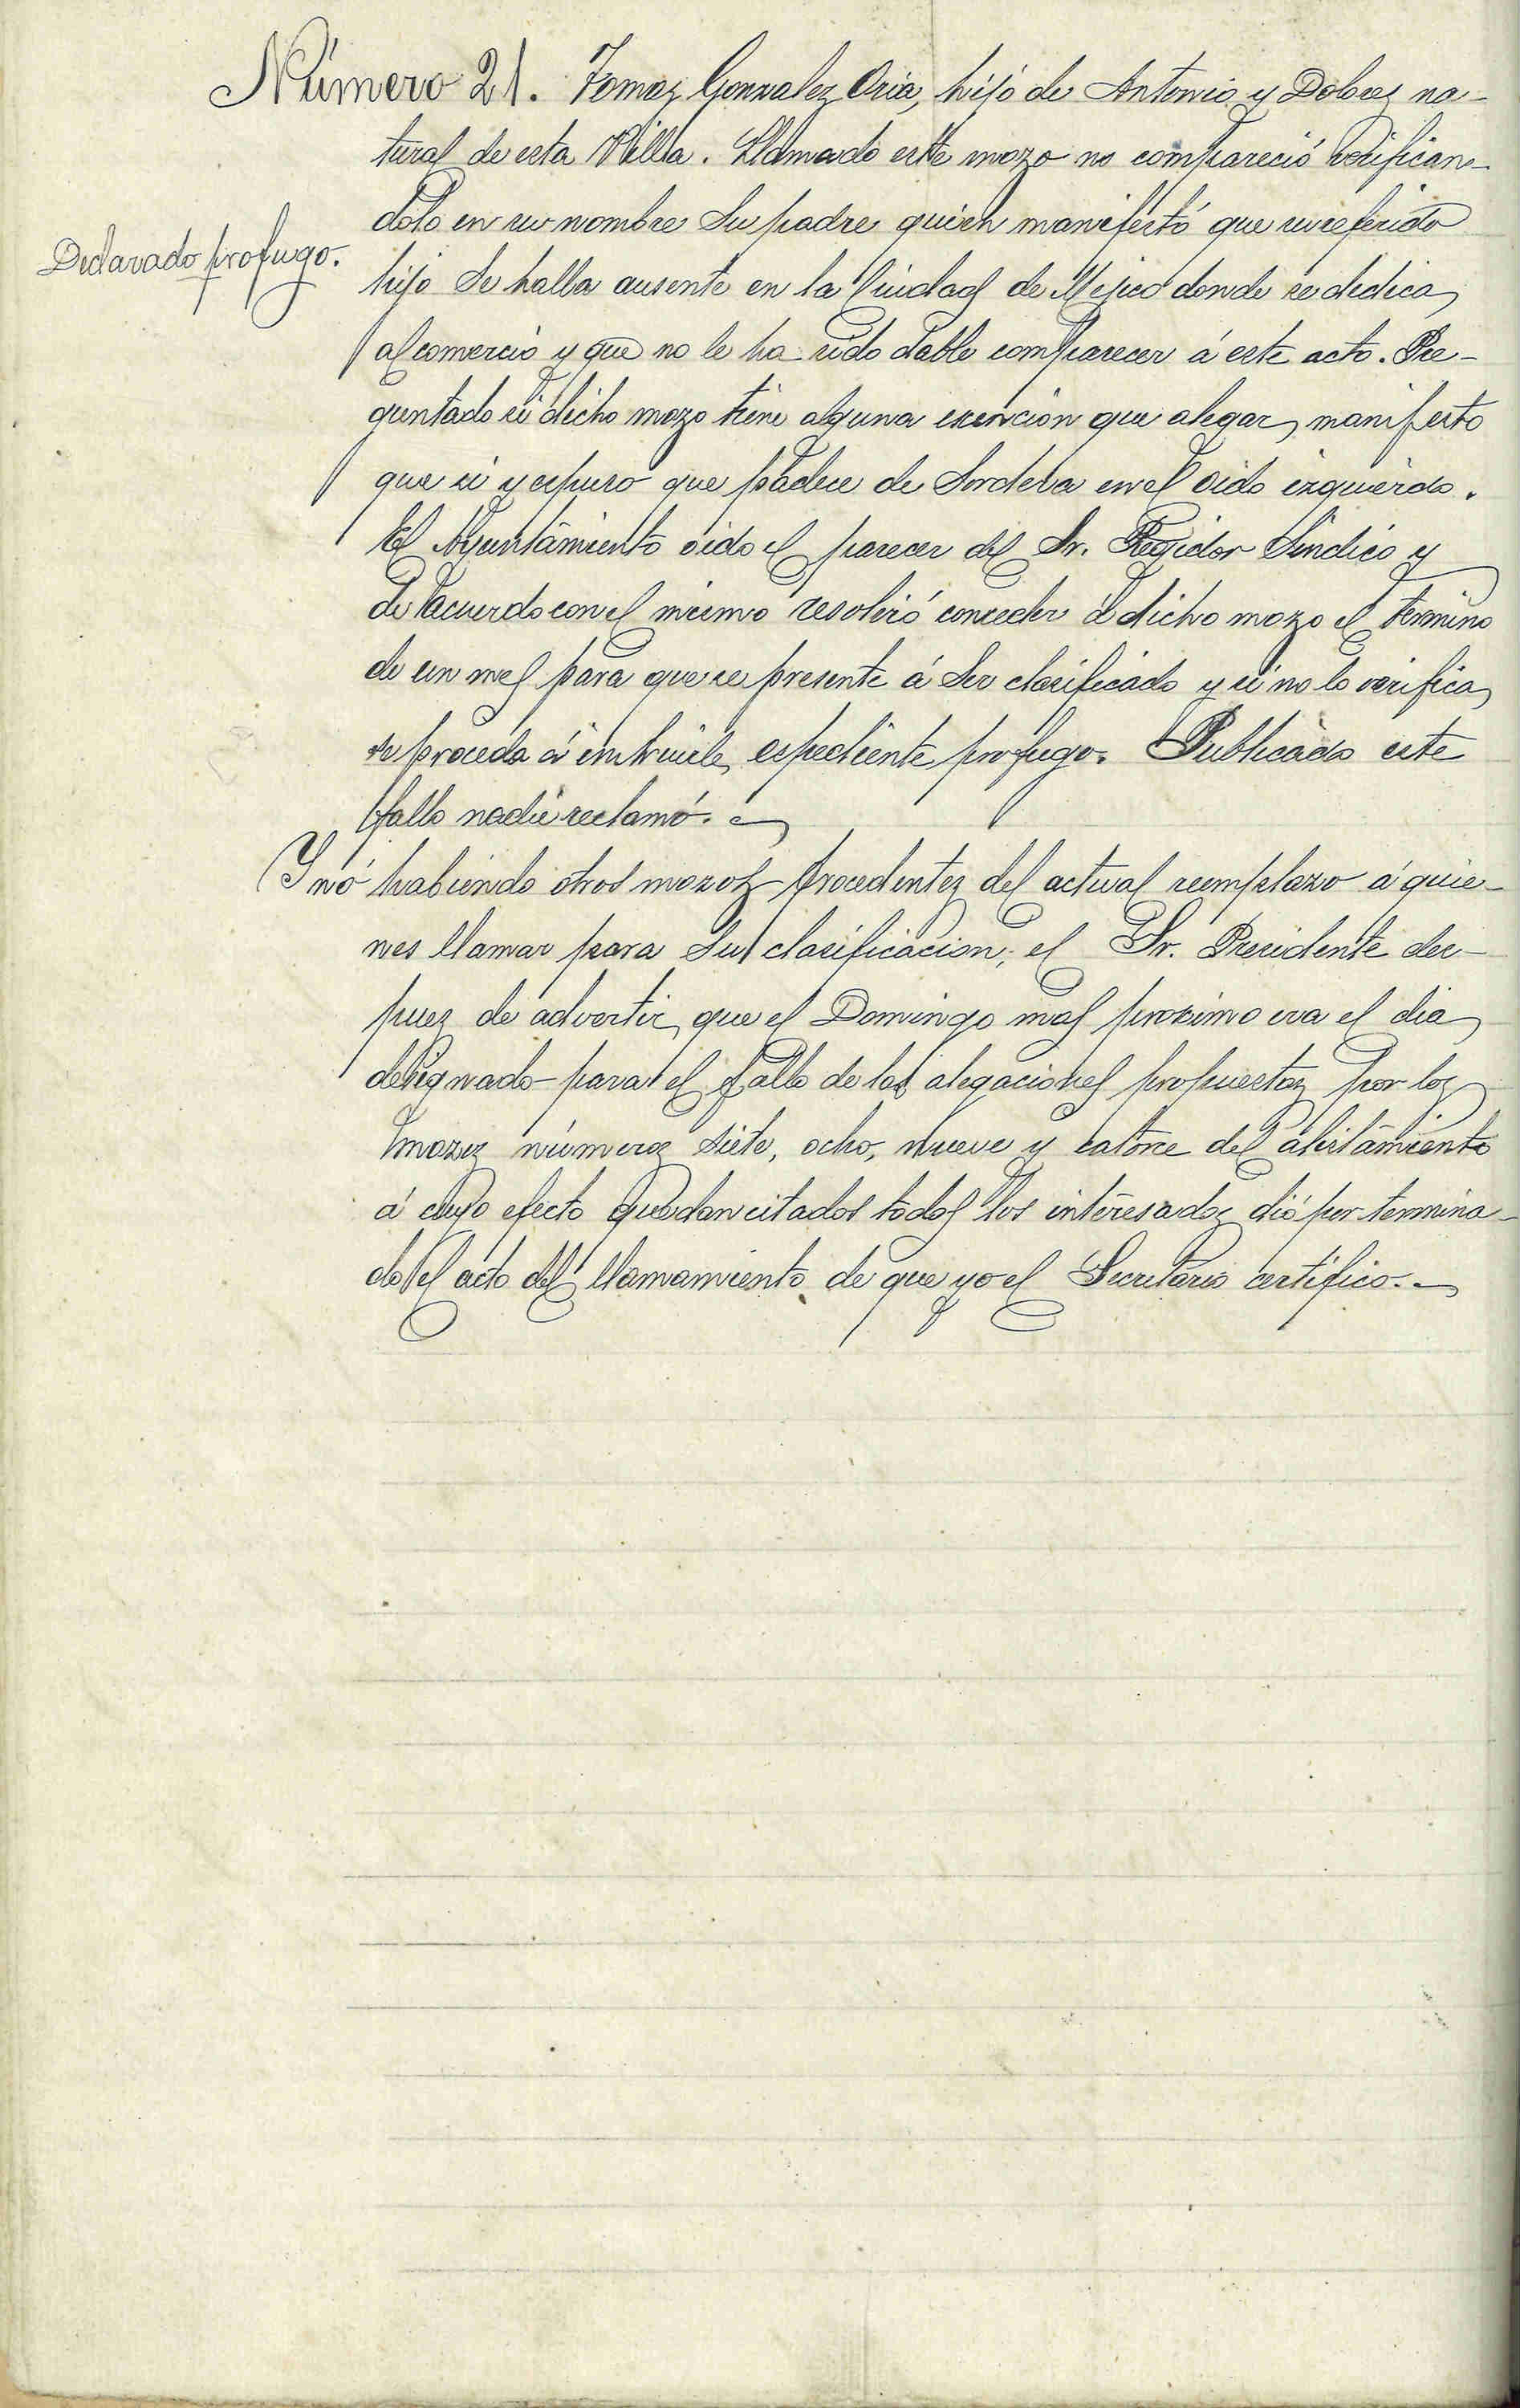 Número 21. Tomaz Gonzalez Oria, hijo de Antonio y Dolores na-
tural de esta Villa. Llamado este mozo no compareció verifican-
dolo en su nombre su padre quien manifestó que su referido
Declarado profugo.
hijo se halla ausente en la Ciudad de Mejico donde se dedica
al comercio y que no le ha sido dable comparecer á este acto. Pre-
guntado si dicho mozo tiene alguna exención que alegar, manifesto
que si y espuso que padece de sordera en el oido izquierdo.
El Ayuntamiento oido el parecer del Sr. Regidor Sindico y
de acuerdo con el mismo resolvió conceder á dicho mozo el termino
de un mes para que se presente á ser clasificado y si no lo verifica
se proceda á instruirle espediente profugo. Publicado este
fallo nadie reclamó.
Y nó habiendo otros mozos procedentes del actual reemplazo á quie-
nes llamar para su clasificación, el Sr. Presidente des-
pues de advertir que el Domingo mas proximo era el dia
designado para el fallo de las alegaciones propuestas por los
mozos números siete, ocho, nueve y catorce del alistamiento
á cuyo efecto quedan citados todos los interesados dió por termina-
do el acto del llamamiento de que yo el Secretario certifico.